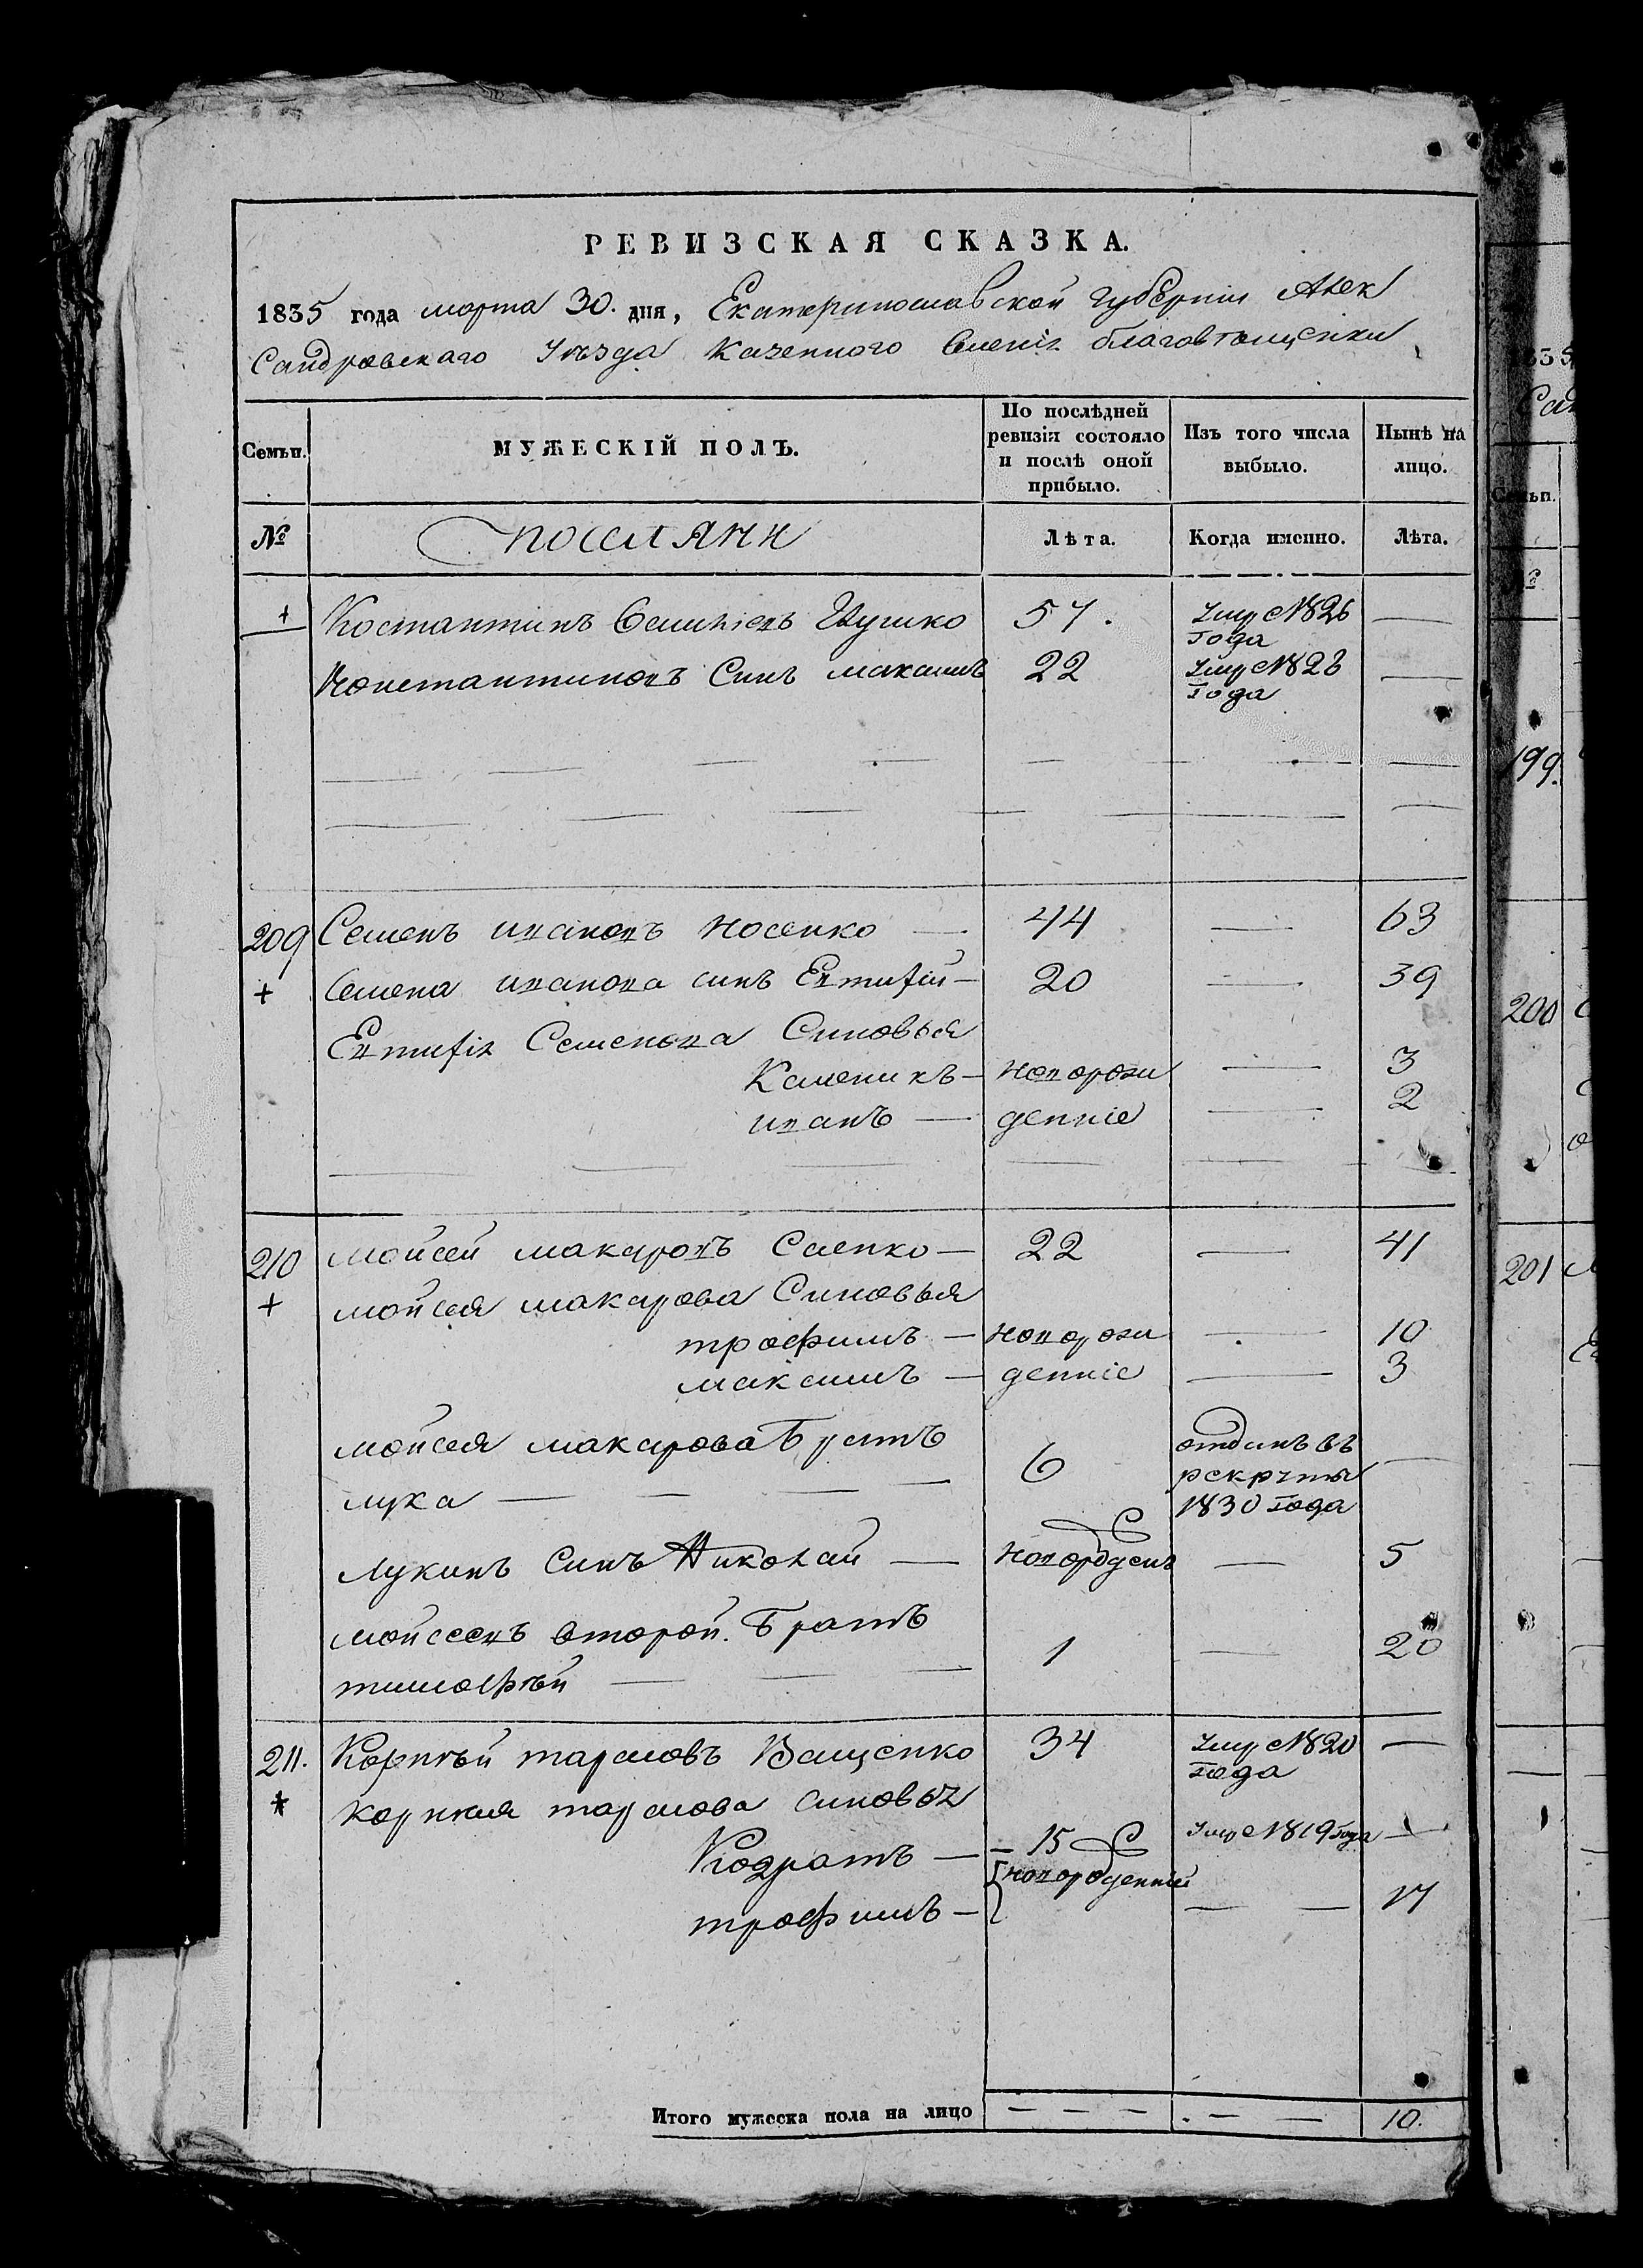 РЕВИЗСКАЯ СКАЗКА.
1835 года марта 30. дня, Екатеринославской губернии Алек
сандровскаго Уѣзда казенного селенія благовѣщенки
Семьи.
МУЖЕСКІЙ ПОЛЪ.
По послѣдней ревизіи состояло и послѣ оной прибыло.
Изъ того числа выбыло.
Нынѣ на лицо.
№
поселяни
Лѣта.
Когда именно.
Лѣта.
Костантинъ 57. Умре 1826 года —
Константиновъ Синъ максимъ 22 Умре 1828 года —
209 Семенъ ивановъ Носенко — 44 — 63
+ Семена иванова синъ Евтифій — 20 — 39
Евтифія Семенова Синовья
Клменикъ — новорож — 3
иванъ — деніе — 2
210 мойсей макаровъ Саенко — 22 — 41
+ мойсея макарова Синовья
трофимъ — новорож — 10
максимъ — деніе — 3
мойсея макарова Братъ
лука — 6 отданъ въ рекруты 1830 года —
Лукинъ Синъ Николай — новорожденъ — 5
мойсеевъ второй. Братъ
тимофѣй — 1 — 20
211. Корнѣй тарасовъ Ващенко 34 Умре 1820 года —
корнѣя тарасова синовья
Кодратъ — 15 Умре 1819 года —
трофимъ — новорожденній — 17
Итого мужеска пола на лицо — — — — — — 10.
1835
Сан
Семьи.
№
199.
200
201